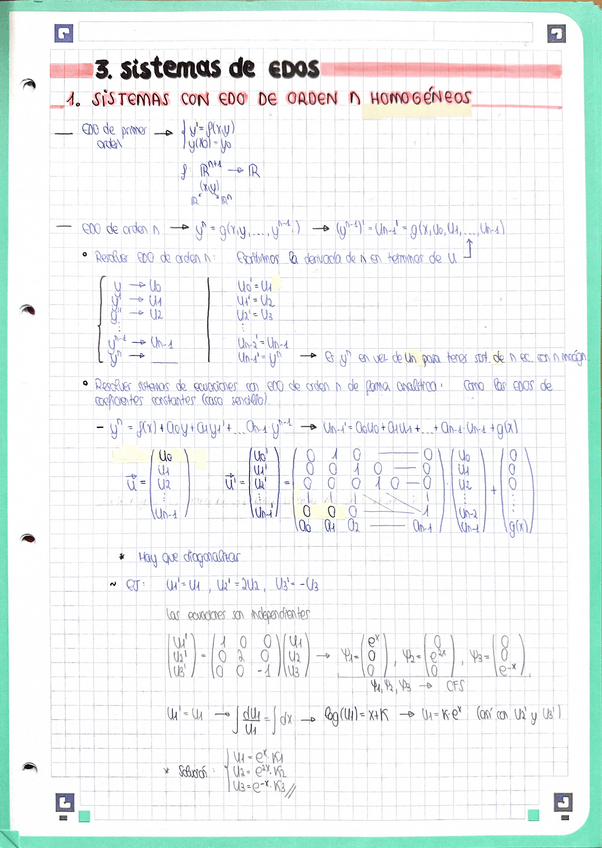 3. Sistemas de EDOS
1. SISTEMAS CON EDO DE ORDEN n HOMOGÉNEOS
— EDO de primer orden → { y' = f(x,y)
y(x0) = y0
f: ℝⁿ⁺¹ → ℝ
(x,y)
— EDO de orden n → yⁿ = g(x,y,...,yⁿ⁻¹) → (yⁿ⁻¹)' = un-1' = g(x,u0,u1,...,un-1)
° Resolver EDO de orden n: Escribimos la derivada de n en términos de u
y → u0 | u0' = u1
y' → u1 | u1' = u2
y'' → u2 | u2' = u3
⋮ ⋮
yⁿ⁻¹ → un-1 | un-2' = un-1
yⁿ → ___ | un-1' = yⁿ → Es yⁿ en vez de un para tener sist. de n ec. con n incógn.
° Resolver sistemas de ecuaciones con EDO de orden n de forma analítica. Como las EDOS de
coeficientes constantes (caso sencillo).
- yⁿ = f(x) + a0y + a1y' + ... an-1 yⁿ⁻¹ → un-1' = a0u0 + a1u1 + ... + an-1·un-1 + g(x)
u0 u0' 0 1 0 — 0 u0 0
u1 u1' 0 0 1 0 — 0 u1 0
u⃗ = u2 u⃗' = u2' = 0 0 0 1 0 — 0 · u2 + 0
⋮ ⋮ ⋮ ⋮ ⋮ ⋮ ⋮
0 0 0 1 un-2
un-1 un-1' a0 a1 a2 — an-1 un-1 g(x)
* Hay que diagonalizar
~ EJ: u1' = u1 , u2' = 2u2 , u3' = -u3
Las ecuaciones son independientes
u1' 1 0 0 u1 eˣ 0 0
u2' = 0 2 0 u2 → φ1 = 0 , φ2 = e²ˣ , φ3 = 0
u3' 0 0 -1 u3 0 0 e⁻ˣ
φ1, φ2, φ3 → CFS
u1' = u1 → ∫ du1/u1 = ∫ dx → log(u1) = x + K → u1 = K·eˣ (así con u2' y u3')
* Solución: { u1 = eˣ·K1
u2 = e²ˣ·K2
u3 = e⁻ˣ·K3 //